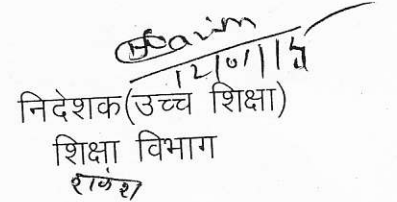 12/01/15
निदेशक(उच्च शिक्षा)
शिक्षा विभाग
राकेश